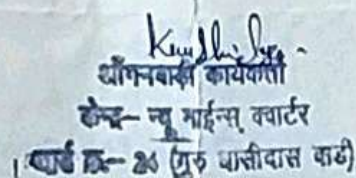 आँगनबाड़ी कार्यकर्ता
केन्द्र- न्यू माईन्स् क्वार्टर
वार्ड क्र.- 24 (गुरु घासीदास वार्ड)